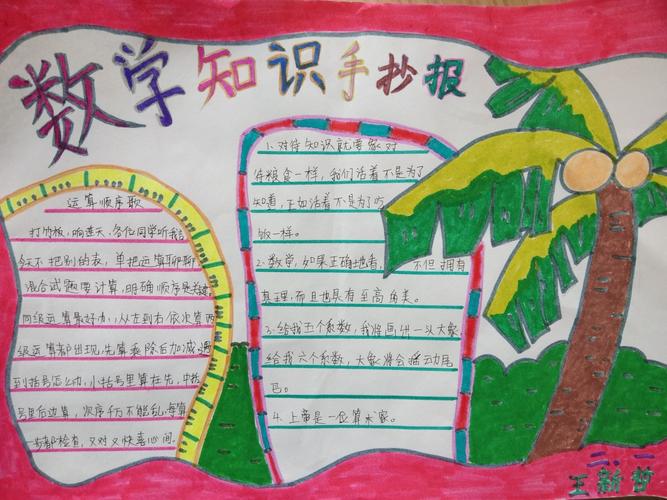 数学知识手抄报
运算顺序歌
打竹板,响连天,各位同学听我言
今天不把别的表,单把运算聊聊
混合试题要计算,明确顺序是关键
同级运算最好办,从左到右依次算,两
级运算都出现,先算乘除后加减,遇
到括号怎么办,小括号里算在先,中括
号里后边算,次序千万不能乱,每算
一步都检查,又对又快喜心间。
1、对待知识就要像对
待粮食一样,我们活着不是为了
知道,正如活着不是为了吃
饭一样。
2、数学,如果正确地看,不但拥有
真理,而且也具有至高的美。
3、给我五个系数,我将画出一头大象
给我六个系数,大象将会摇动尾
巴。
4、上帝是一位算术家。
二.一
王新哲